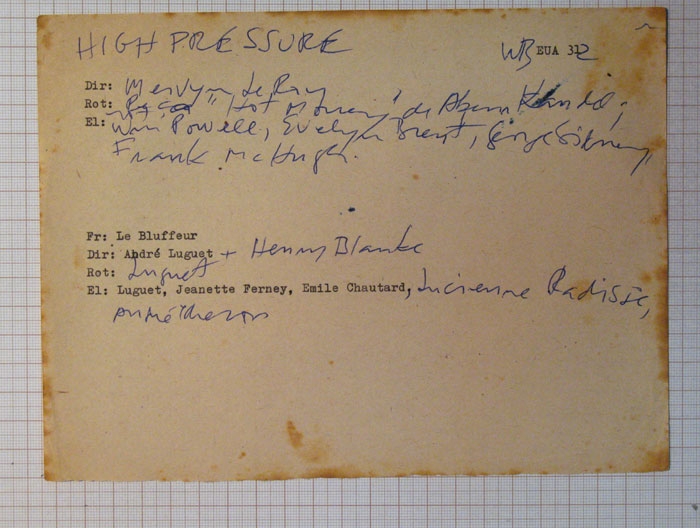 HIGH PRESSURE WB EUA 32
Dir: Mervyn LeRoy
Rot: "Hot Money" de Aben Kandel;
El: Wm Powell, Evelyn Brent, George Sidney,
Frank McHugh.
Fr: Le Bluffeur
Dir: André Luguet + Henry Blanke
Rot: Luguet
El: Luguet, Jeanette Ferney, Emile Chautard, Lucienne Radisse,
André Cheron